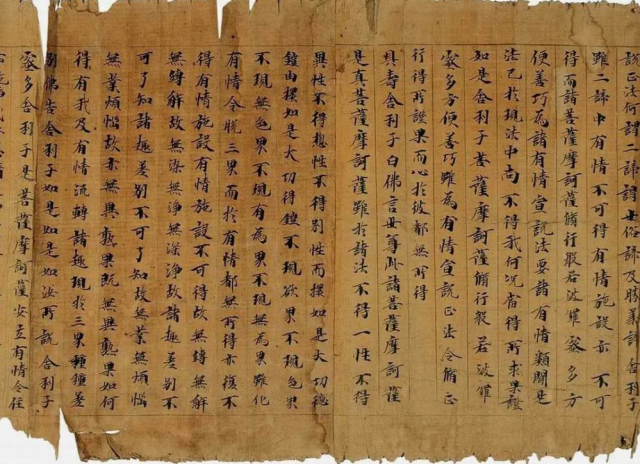 說正法何謂二諦謂世俗諦及勝義諦舍利子
雖二諦中有情不可得有情施設亦不可
得而諸菩薩摩訶薩脩行般若波羅蜜多方
便善巧為諸有情宣說法要諸有情類聞是
法已於現法中尚不得我何況當得所求果證
如是舍利子諸菩薩摩訶薩脩行般若波羅
蜜多方便善巧雖為有情宣說正法令脩正
行得所證果而心於彼都無所得
具壽舍利子白佛言世尊此諸菩薩摩訶薩
是真菩薩摩訶薩雖於諸法不得一性不得
異性不得總性不得別性而擐如是大功德
鎧由擐如是大功得鎧不現欲界不現色界
不現無色界不現有為界不現無為界雖化
有情令脫三界而於有情都無所得亦復不
得有情施設有情施設不可得故無縛無解
無縛解故無染無淨無染淨故諸趣差別不
可了知諸趣差別不可了知故無業無煩惱
無業煩惱故亦無異熟果既無異熟果如何
得有我及有情流轉諸趣現於三界種種差
別佛告舍利子如是如是如汝所說舍利子
蜜多舍利子是菩薩摩訶薩安立有情令住